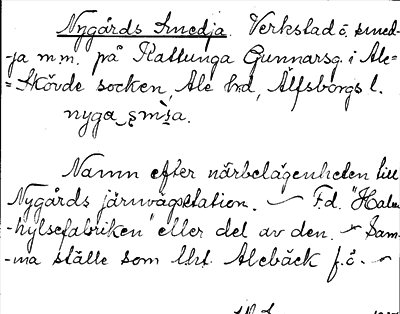 Nygårds Smedja. Verkstad o. smed-
-ja m.m. på Kattunga Gunnarsg. i Ale=
=Skövde socken, Ale hd, Älfsborgs l.
nyga ṣmìsa.
Namn efter närbelägenheten till
Nygårds järnvägsstation. — F.d. "Halm
-hylsefabriken" eller del av den. — Sam-
-ma ställe som lht. Alebäck f.ö. —